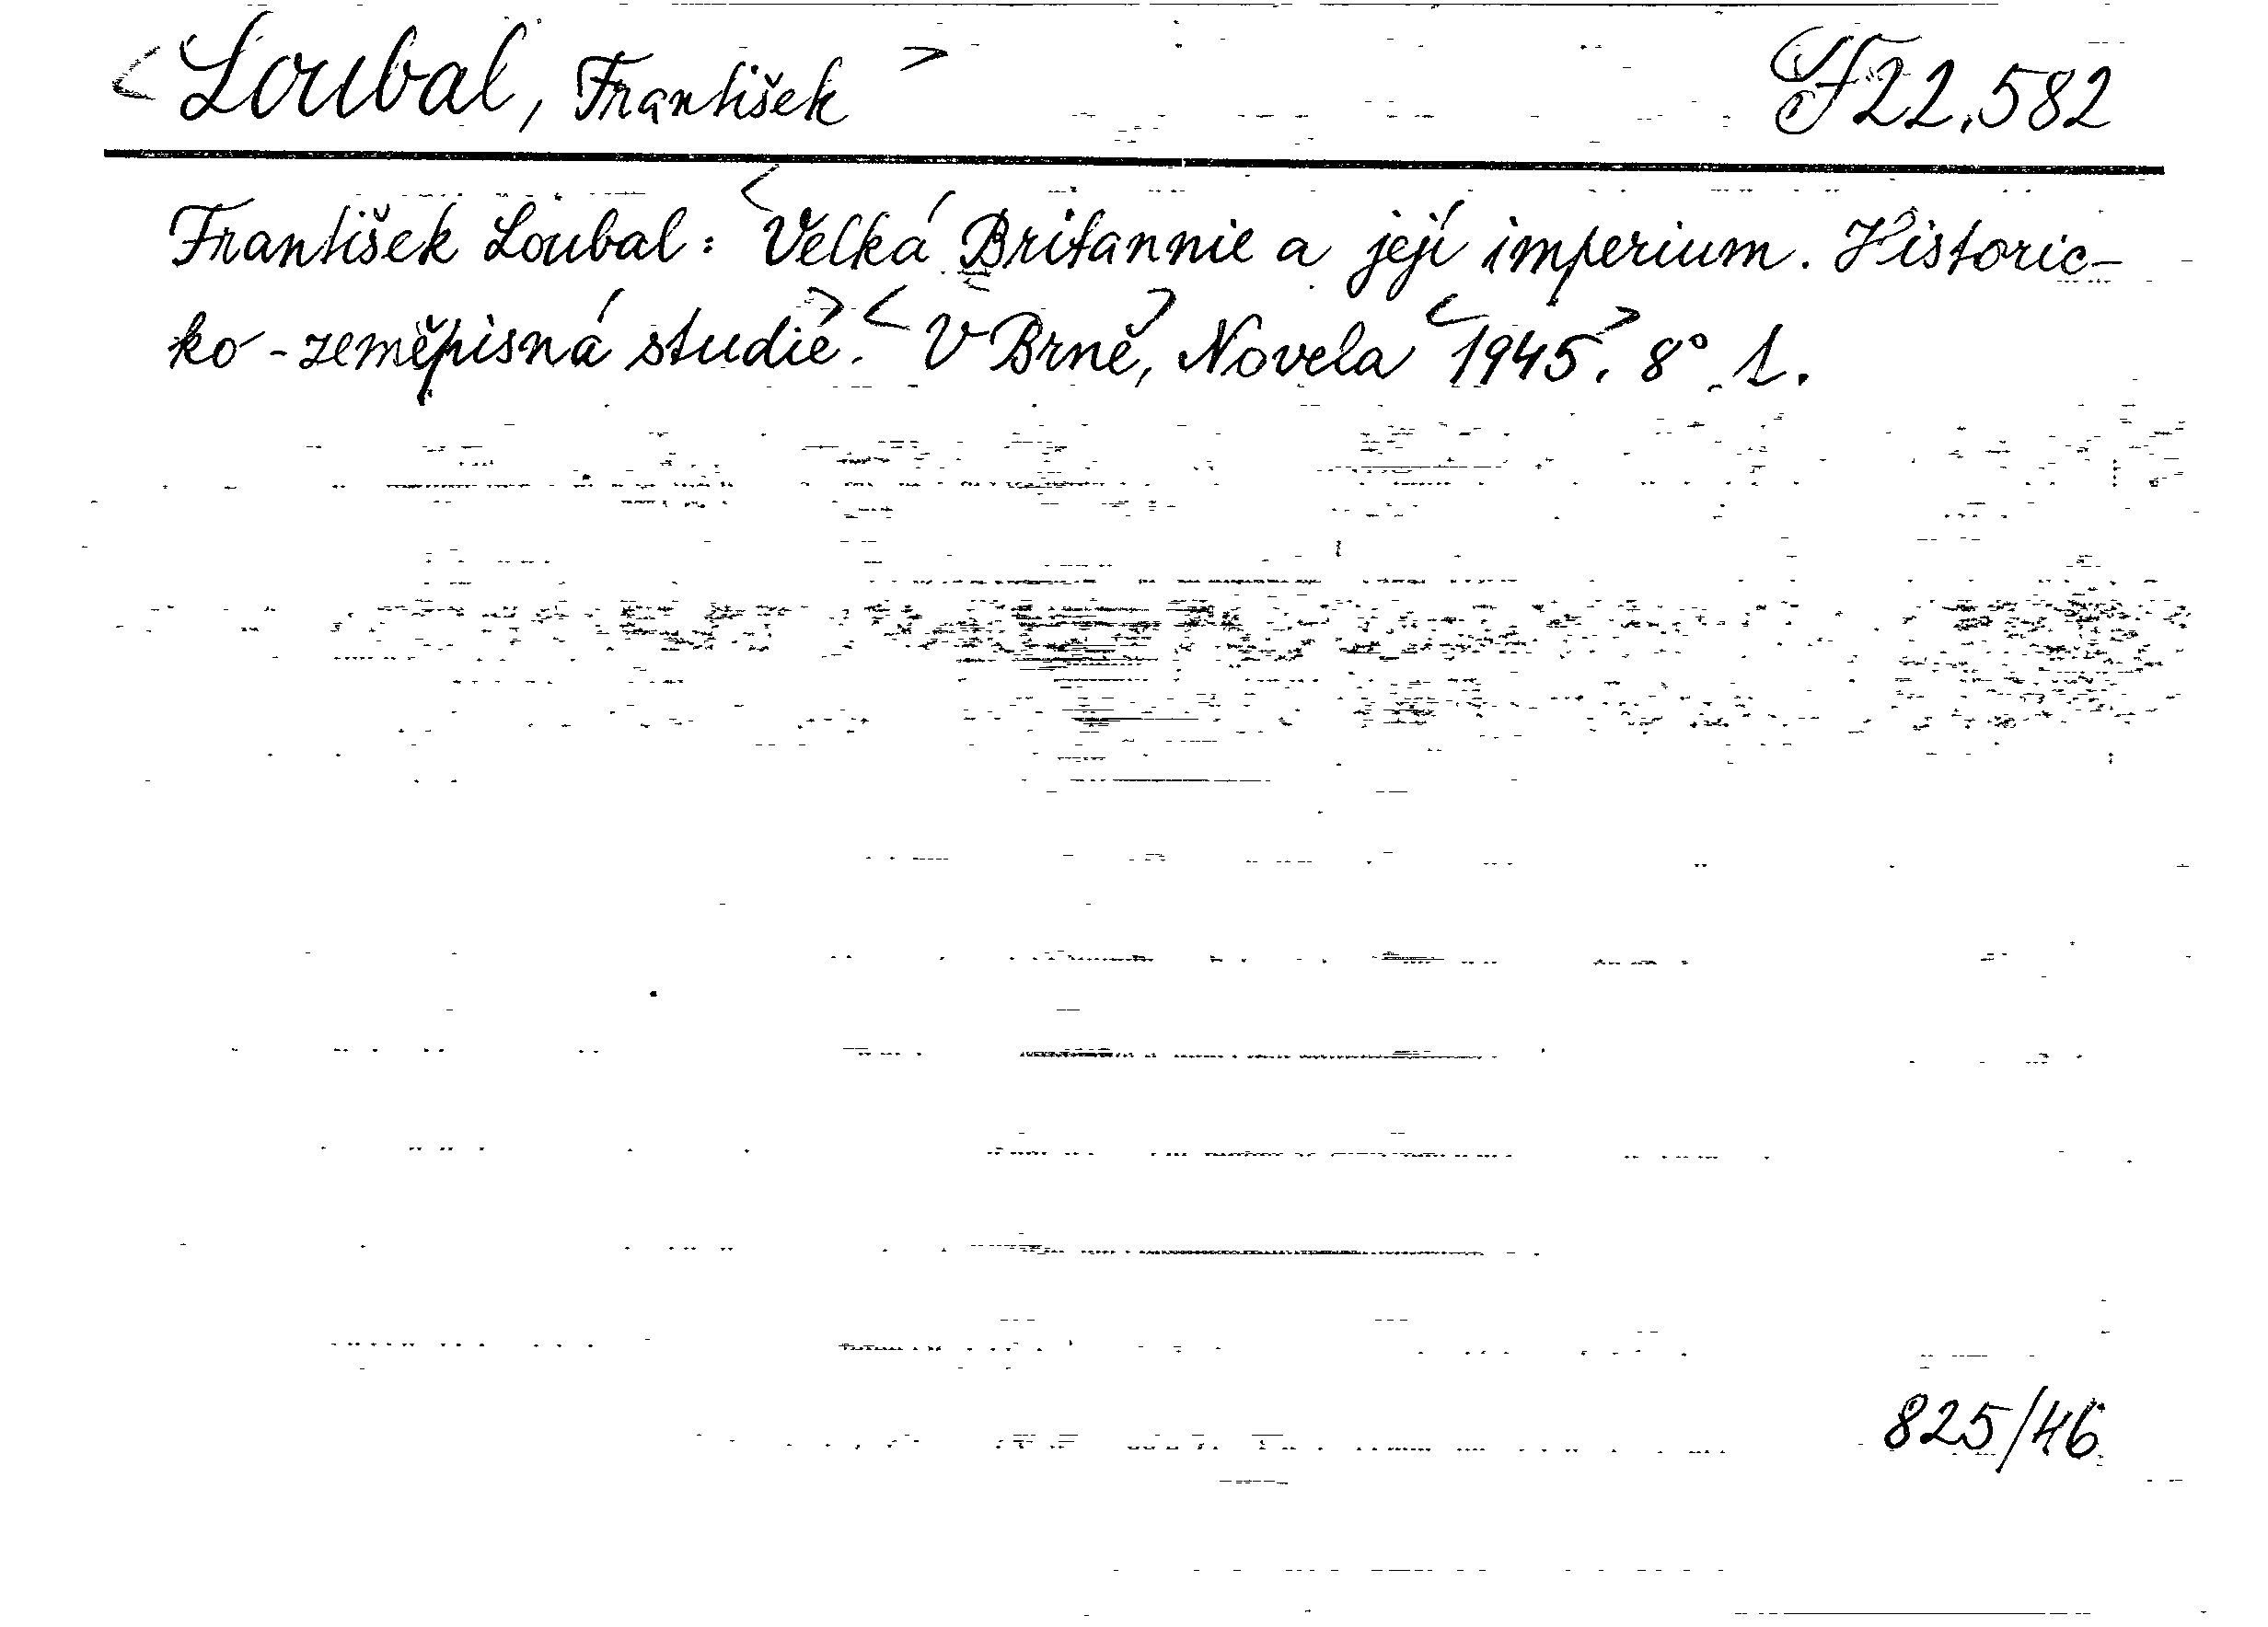 <Loubal, František> F 22.582
František Loubal: <Velká Britannie a její imperium. Historic-
ko-zeměpisná studie.> <V Brně>, Novela <1945>. 8° 1.
825/46